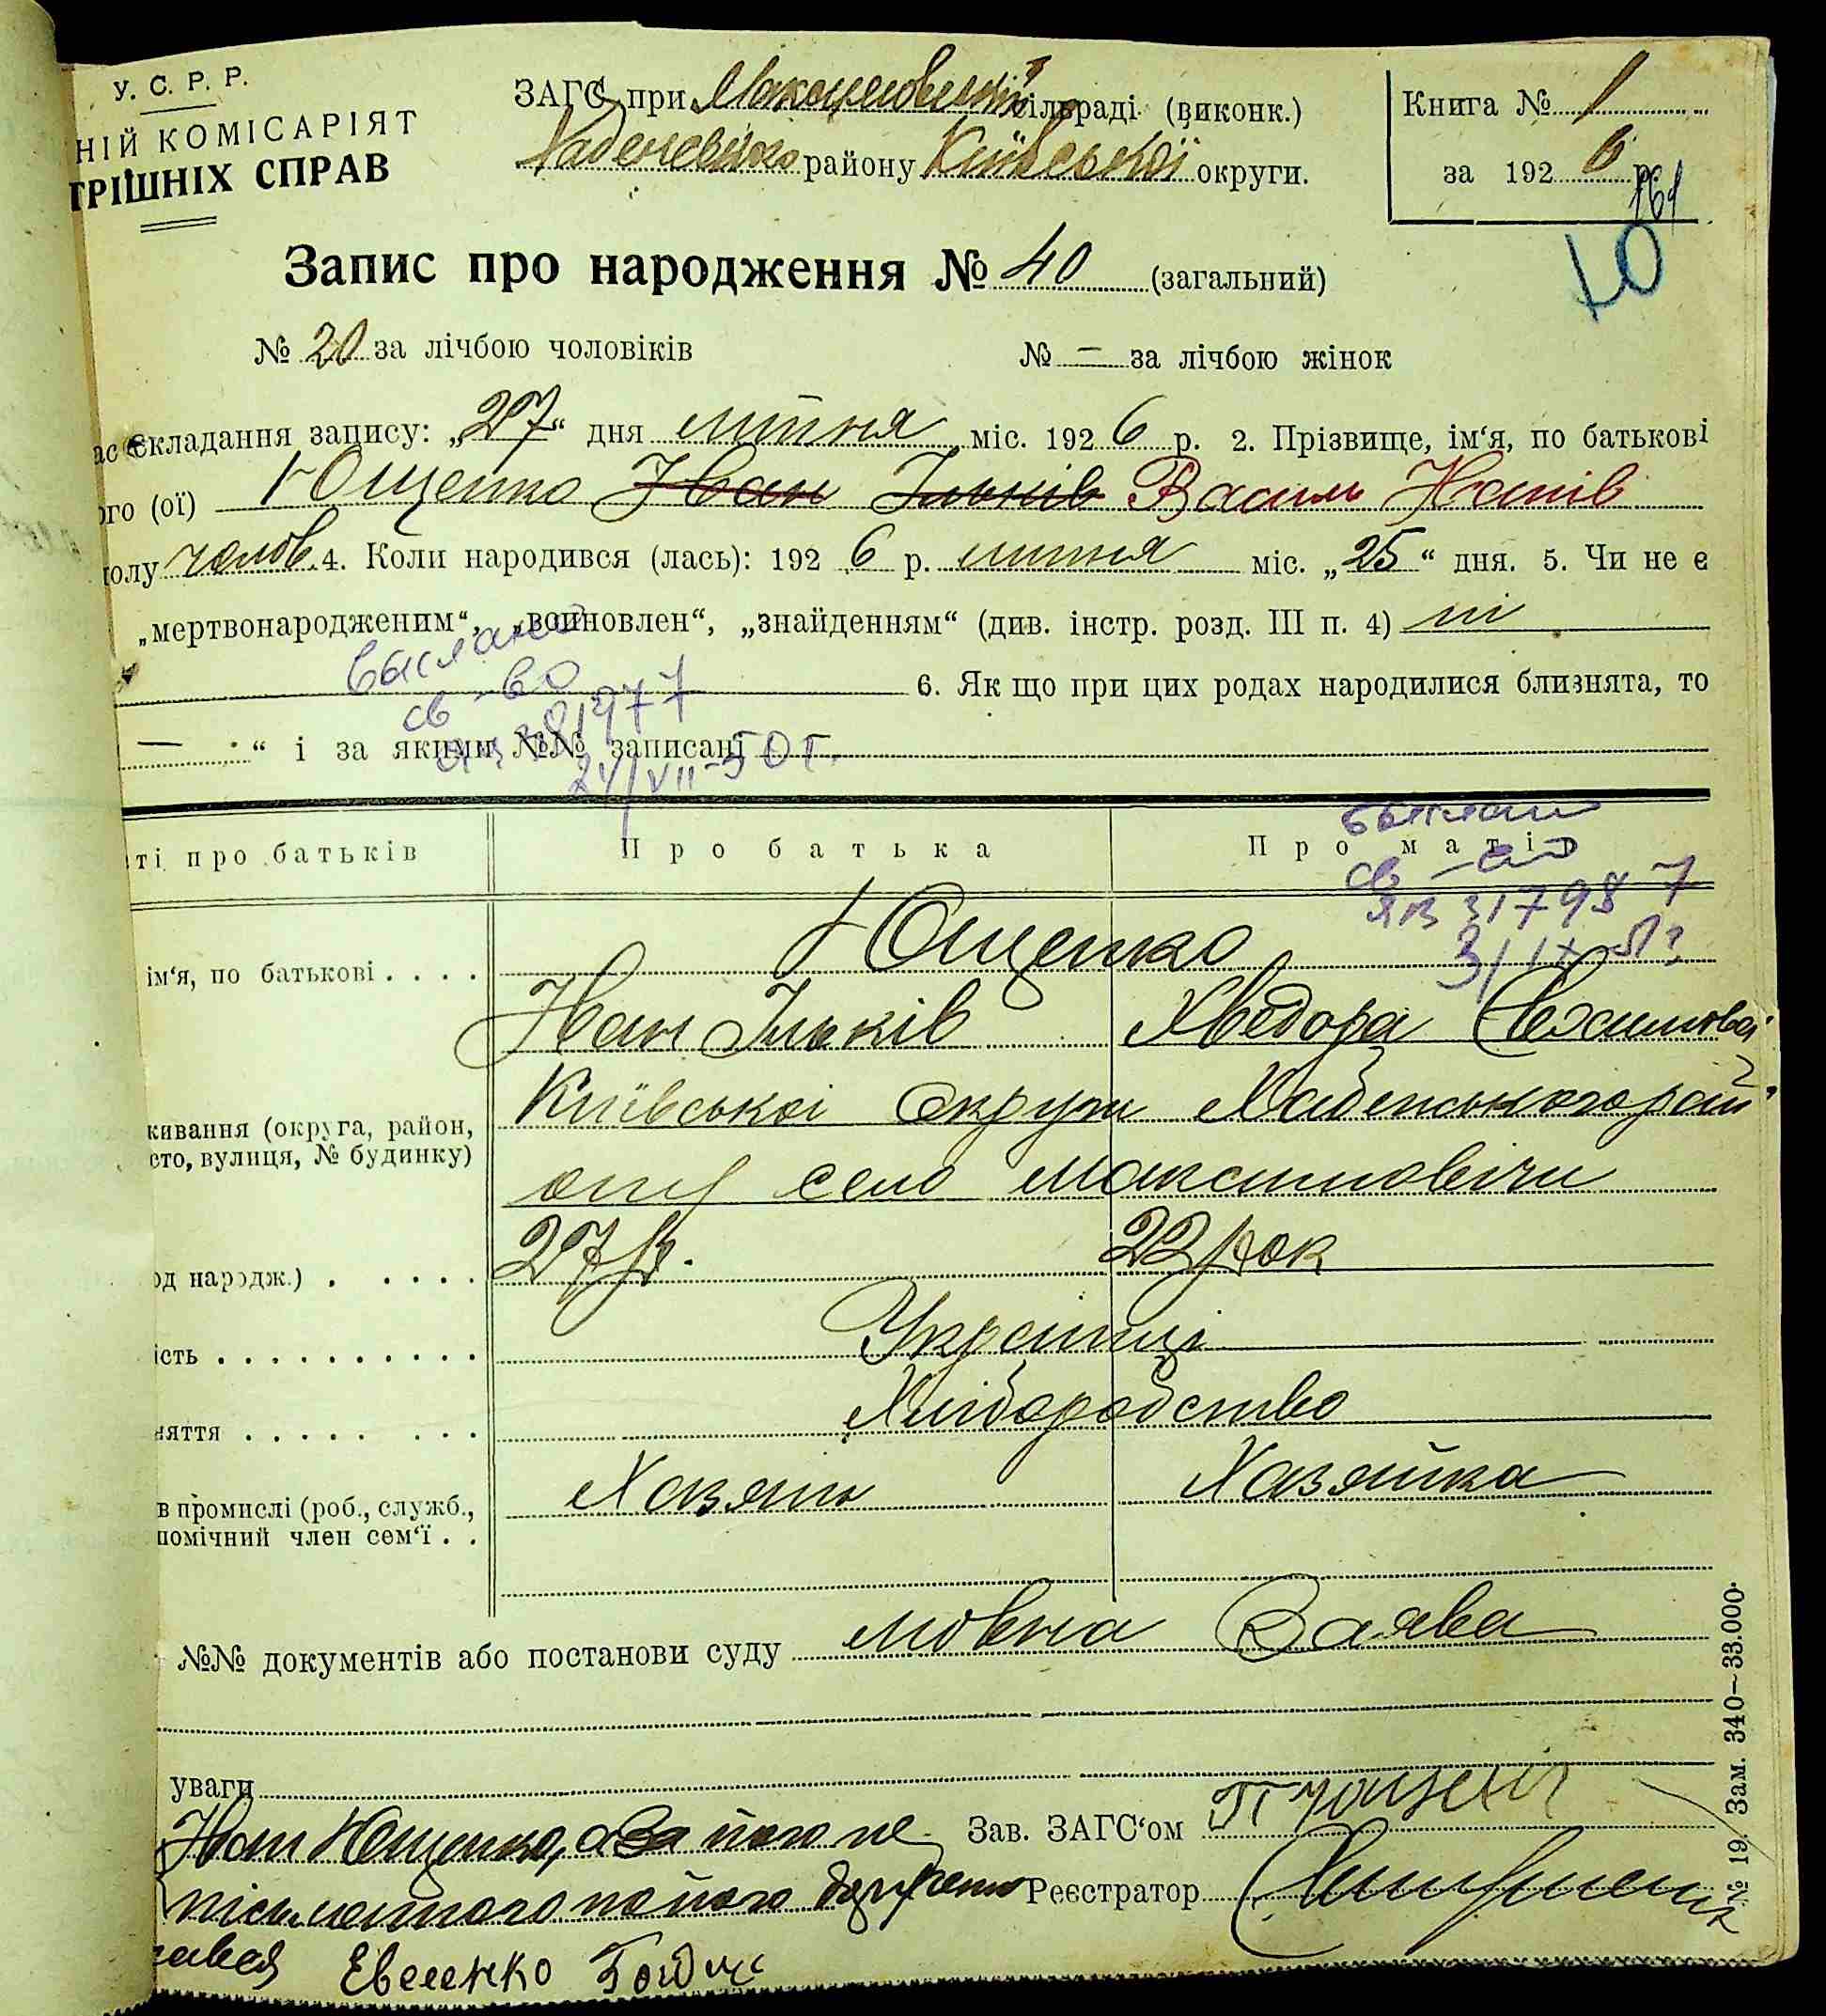 У. С. Р. Р.
НІЙ КОМІСАРІЯТ
ТРІШНІХ СПРАВ
ЗАГС при сільраді (виконк.)
району Київської округи.
Книга № 1
за 192 6 р.
161
40
Запис про народження № 40 (загальний)
№ 20 за лічбою чоловіків № — за лічбою жінок
ас складання запису: „27“ дня липня міс. 192 6 р. 2. Прізвище, ім‘я, по батькові
ого (ої) Ющенко Іван Ільків Василь Иванів
полу чолов. 4. Коли народився (лась): 192 6 р. липня міс. „25“ дня. 5. Чи не є
„мертвонародженим“, „воиновлен“, „знайденням“ (див. інстр. розд. III п. 4) ні
6. Як що при цих родах народилися близнята, то
— “ і за якими №№ записані
св-во
24/VII-50 г.
ті про батьків Про батька Про матір
св-во
ЯВ 317987
Ющенко
ім‘я, по батькові . . . .
Иван Ільків Хведора
Київської Округи
живання (округа, район,
сто, вулиця, № будинку)
село Максимовичи
од народж.) . . . . . 27 р. 22 рок
ість . . . . . . . . . . . Українці
няття . . . . . . . . Хліборобство
Хазяїн Хазяйка
в промислі (роб., служб.,
помічний член сем‘ї . .
№№ документів або постанови суду мовна Заява
уваги
Иван Ющенко, а За його не
Зав. ЗАГС‘ом
письменного по його
Реєстратор
Евсенко
№ 19. Зам. 340—33.000.